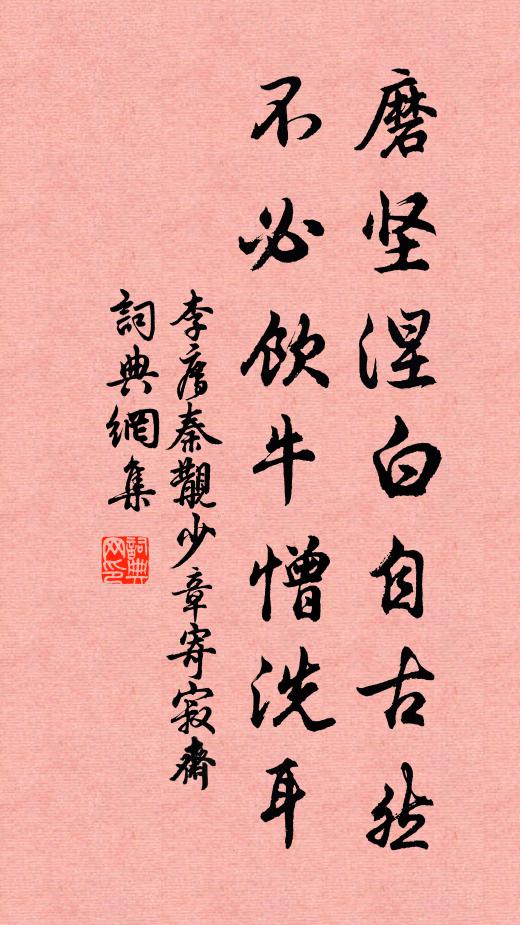 磨坚涅白自古然
不必饮牛憎洗耳
李廌秦觀少章寄寂齋
詞典網集
詞典网印